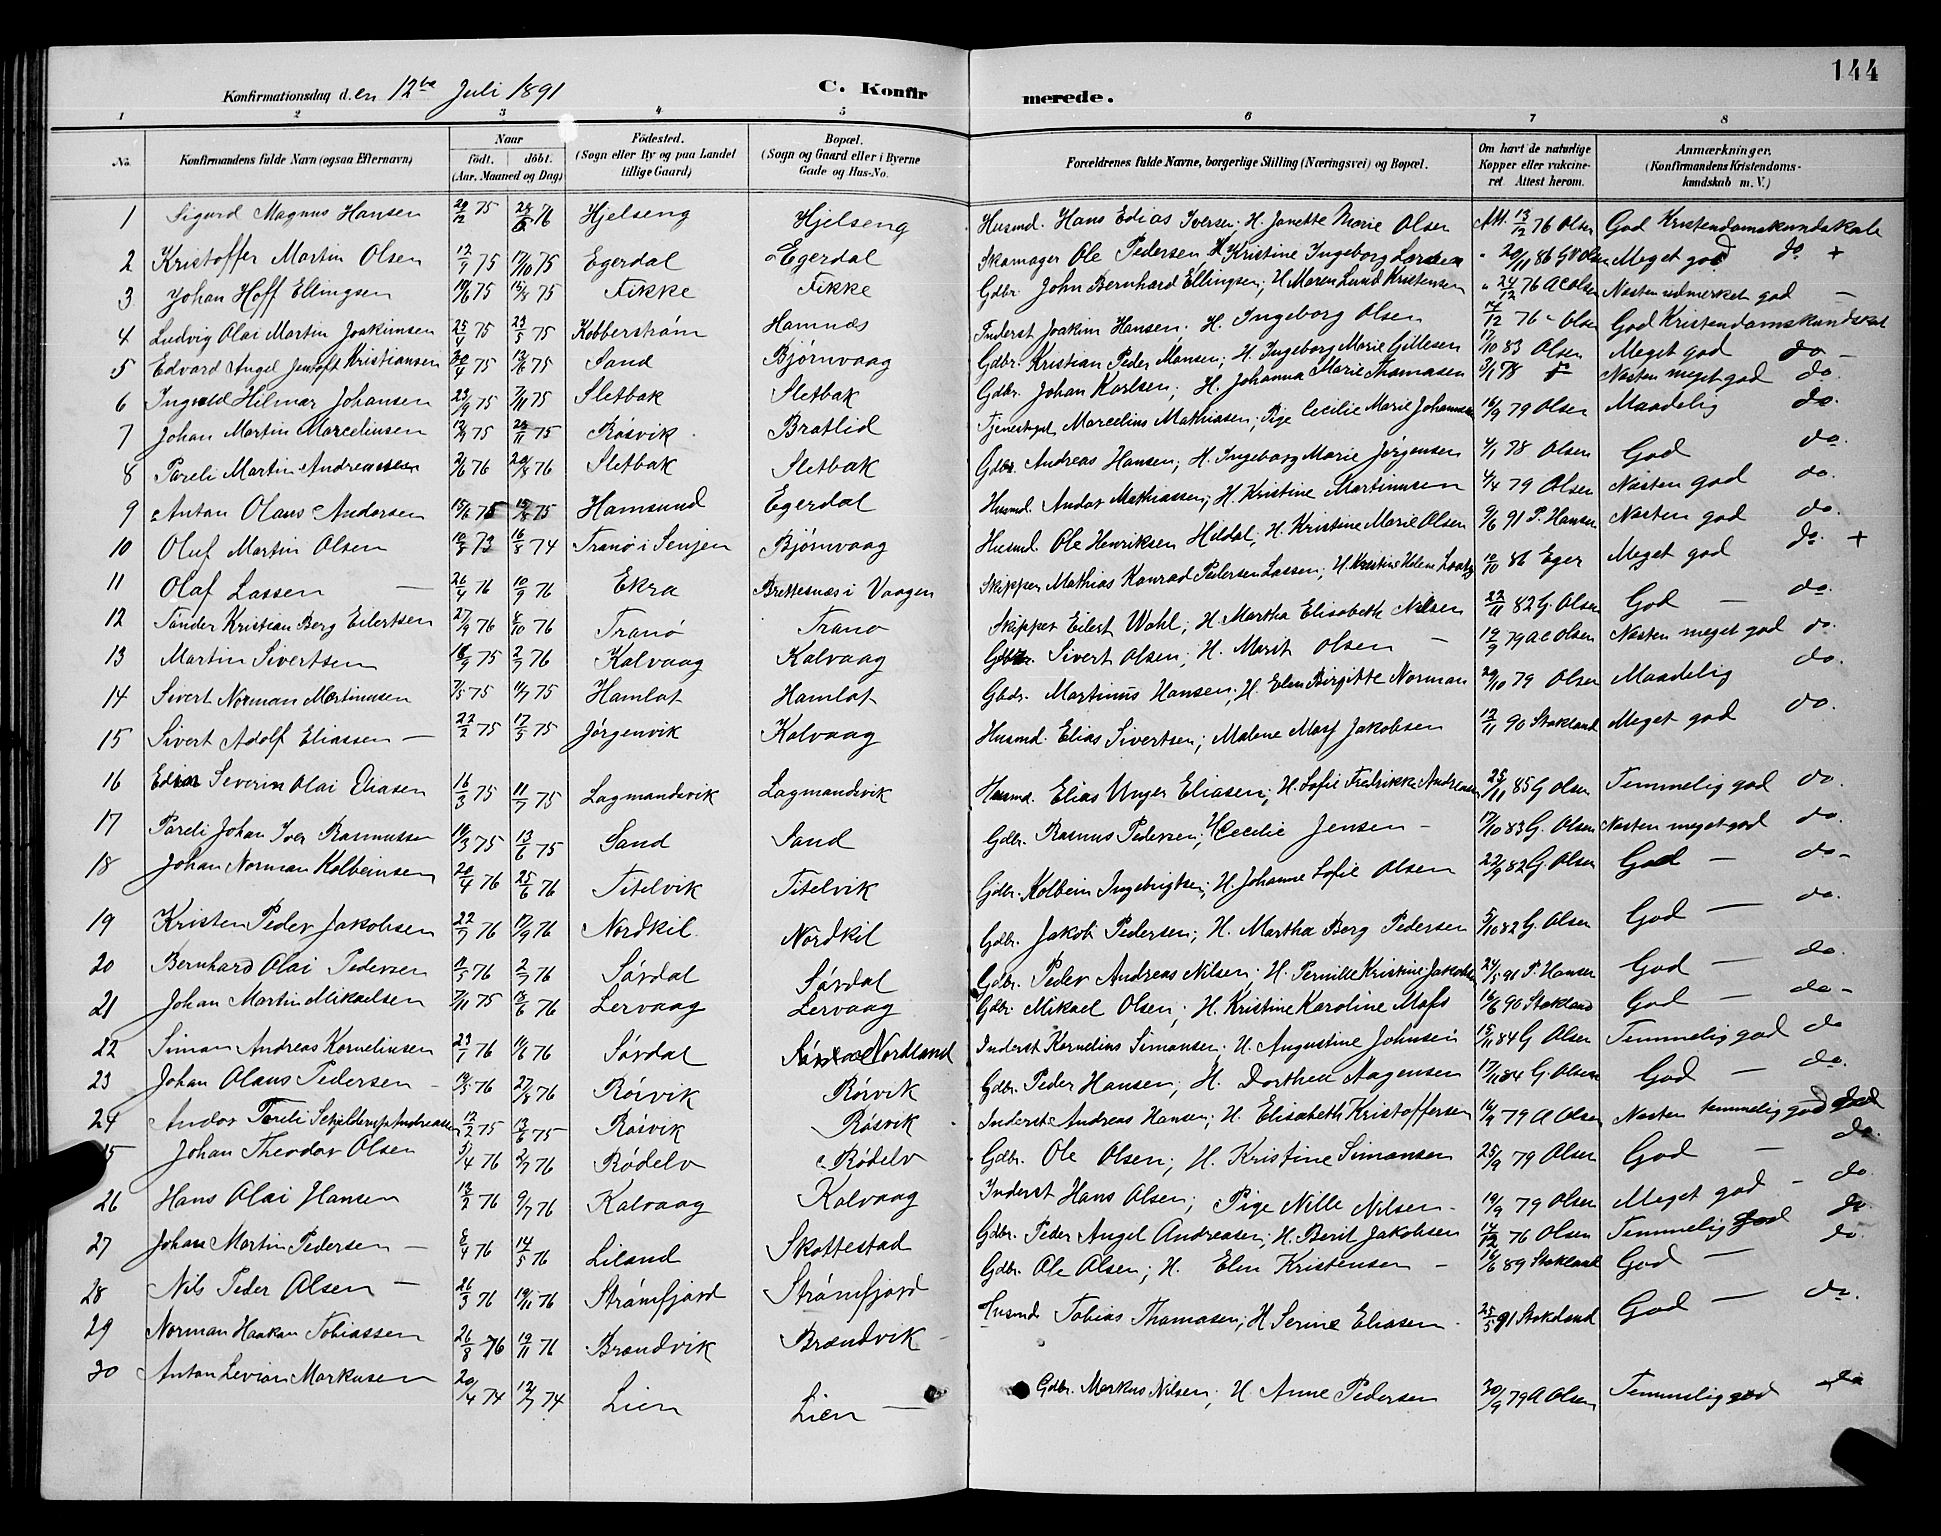 144
Konfirmationsdag d.en 12te Juli 1891 C. Konfirmerede.
1 2 3 4 5 6 7 8
No. Konfirmandens fulde Navn (ogsaa Efternavn) Naar födt. döbt. (Aar. Maaned og Dag) Födested. (Sogn eller By og paa Landet tillige Gaard) Bopæl. (Sogn og Gaard eller i Byerne Gade og Hus-No. Forældrenes fulde Navne, borgerlige Stilling (Næringsvei) og Bopæl. Om havt de naturlige Kopper eller vakcineret Attest herom. Anmærkninger. (Konfirmandens Kristendomskundskab m. V.)
1 Sigurd Magnus Hansen 75 76 Hjelseng Hjelseng Husmd. Hans Edias Iversen; H. Janette Marie Olsen Att. 13/12 76 Olsen God Kristendomskundskab
2 Kristoffer Martin Olsen 75 17/10 75 Egerdal Egerdal Skomager Ole Pedersen, H. Kristine Ingeborg Larsen 20/11 86 G Olsen Meget god do +
3 Johan Hoff Ellingsen 75 15/8 75 Fikke Fikke Gdbr. John Bernhard Ellingsen; H. Maren Lund Kristensen 24/12 76 A C Olsen Næsten udmerket god —
4 Ludvig Olai Martin Joakimsen 25/4 75 23/5 75 Kobberstrøm Hamnæs Inderst Joakim Hansen. H. Ingeborg Olsen 76 Olsen God Kristendomskundskab
5 Edvard Angel Jentoft Kristiansen 75 13/6 75 Sand Bjørnvaag Gdbr. Kristian Peder Monsen; H. Ingeborg Marie Gillesen 17/10 83 Olsen Meget god do —
6 Ingvald Hilmar Johansen 23/9 75 7/11 75 Sletbak Sletbak Gdbr. Johan Karlsen; H. Johanna Marie Thomasen 78 Næsten meget god do.
7 Johan Martin Marcelinsen 75 28/11 75 Røsvik Bratlid Marcelius Mathiasen; Pige Cecilie Marie Johannsen 16/9 79 Olsen Maadelig do.
8 Pareli Martin Andreassen 2/6 76 20/8 76 Sletbak Sletbak Gdbr. Andreas Hansen; H. Ingeborg Marie Jørgensen 4/1 78 Olsen God do.
9 Anton Olaus Andorsen 15/6 75 75 Hamsund Egerdal Husmd. Andor Mathiassen; H. Kristine Martinusen 79 Olsen Næsten god do.
10 Oluf Martin Olsen 73 16/8 74 Tranø i Senjen Bjørnvaag Husmd. Ole Henriksen Hildal, H. Kristine Marie Olsen 9/6 91 P. Hansen Næsten god do.
11 Olaf Lassen — 26/4 76 10/9 76 Ekra Brettesnæs i Vaagen Skipper Mathias Konrad Pedersen Lassen; H. Kristine Helene 86 Eger Meget god do. +
12 Tønder Kristian Berg Eilertsen 27/9 76 8/10 76 Tranø Tranø Skipper Eilert Wohl; H. Martha Elisabeth Nilsen 22/11 82 G. Olsen God — do.
13 Martin Sivertsen 18/9 75 2/7 76 Kalvaag Kalvaag Gdbr. Sivert Olsen; H. Marit Olsen — 79 A C Olsen Næsten meget god do.
14 Sivert Norman Martinusen 7/5 75 11/7 75 Hamlot Hamlot Gbdr. Martinus Hansen; H. Elen Birgitte Norman 79 Olsen Maadelig do.
15 Sivert Adolf Eliassen — 22/2 75 17/5 75 Jørgenvik Kalvaag Husmd. Elias Sivertsen; Malene Marj Jakobsen 12/11 90 Stokland Meget god do.
16 Severin Olai Eliasen 16/3 75 11/7 75 Lagmandsvik Lagmandsvik Husmd. Elias Unger Eliasen; H. Sofie Fredrikke Andreasen 25/11 85 G Olsen Temmelig god do
17 Pareli Johan Iver Rasmussen 19/3 75 13/6 75 Sand Sand Gdbr. Rasmus Pedersen; H. Cecilie Jensen — 17/10 83 G. Olsen Næsten meget god do.
18 Johan Norman Kolbeinsen 20/4 76 25/6 76 Titelvik Titelvik Gdbr. Kolbein Ingebrigtsen; H. Johanne Sofie Olsen 22/9 82 G. Olsen God — do —
19 Kristen Peder Jakobsen 22/7 76 17/9 76 Nordkil Nordkil Gdbr. Jakob Pedersen; H. Martha Berg Pedersen 5/10 82 G. Olsen God — do.
20 Bernhard Olai Pedersen 11/5 76 2/7 76 Sørdal Sørdal Gdbr. Peder Andreas Nilsen; H. Pernille Kristine Jakobsen 24/5 91 P. Hansen God — do.
21 Johan Martin Mikaelsen 7/11 75 18/6 76 Lervaag Lervaag Gdbr. Mikael Olsen; H. Kristine Karoline Mass 16/6 90 Stokland God — do —
22 Simon Andreas Kornelinsen 23/1 76 11/6 76 Sørdal Nordland Inderst Kornelius Simonsen. H. Augustine Johnsen 15/11 84 G Olsen Temmelig god do
23 Johan Olaus Pedersen — 19/5 76 27/8 76 Rørvik Rørvik Gdbr. Peder Hansen; H. Dorthea Aagensen 17/11 84 G. Olsen God — do.
24 Andor Pareli Schjelderup Andreassen 12/2 75 13/6 75 Røsvik Røsvik Inderst Andreas Hansen; H. Elisabeth Kristoffersen 16/9 79 A Olsen Næsten temmelig god
25 Johan Theodor Olsen 5/4 76 2/7 76 Rødelv Rødelv Gdbr. Ole Olsen; H. Kristine Simonsen 25/9 79 Olsen God — do.
26 Hans Olai Hansen 13/2 76 9/7 76 Kalvaag Kalvaag Inderst Hans Olsen; Pige Nille Nilsen — 19/9 79 Olsen Meget god — do.
27 Johan Martin Pedersen — 8/4 76 14/5 76 Liland Skottestad Gdbr. Peder Angel Andreasen; H. Berit Jakobsen 14/12 76 Olsen Temmelig god do
28 Nils Peder Olsen — 26/3 76 19/11 76 Strømfjord Strømfjord Gdbr. Ole Olsen; H. Elen Kristensen — 16/6 89 Stokland God — do.
29 Norman Haakon Tobiassen 26/8 76 19/11 76 Brændvik Brændvik Husmd Tobias Thomasen; H Serine Eliasen — 25/5 91 Stokland God — do.
30 Anton Levion Markusen 20/4 74 12/7 74 Lien Lien — Gdbr. Markus Nilsen; H. Anne Pedersen 30/9 79 A Olsen Temmelig god do